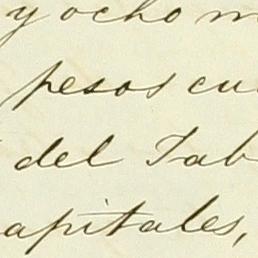 y ocho m
pesos cu
del Tab
apitales,